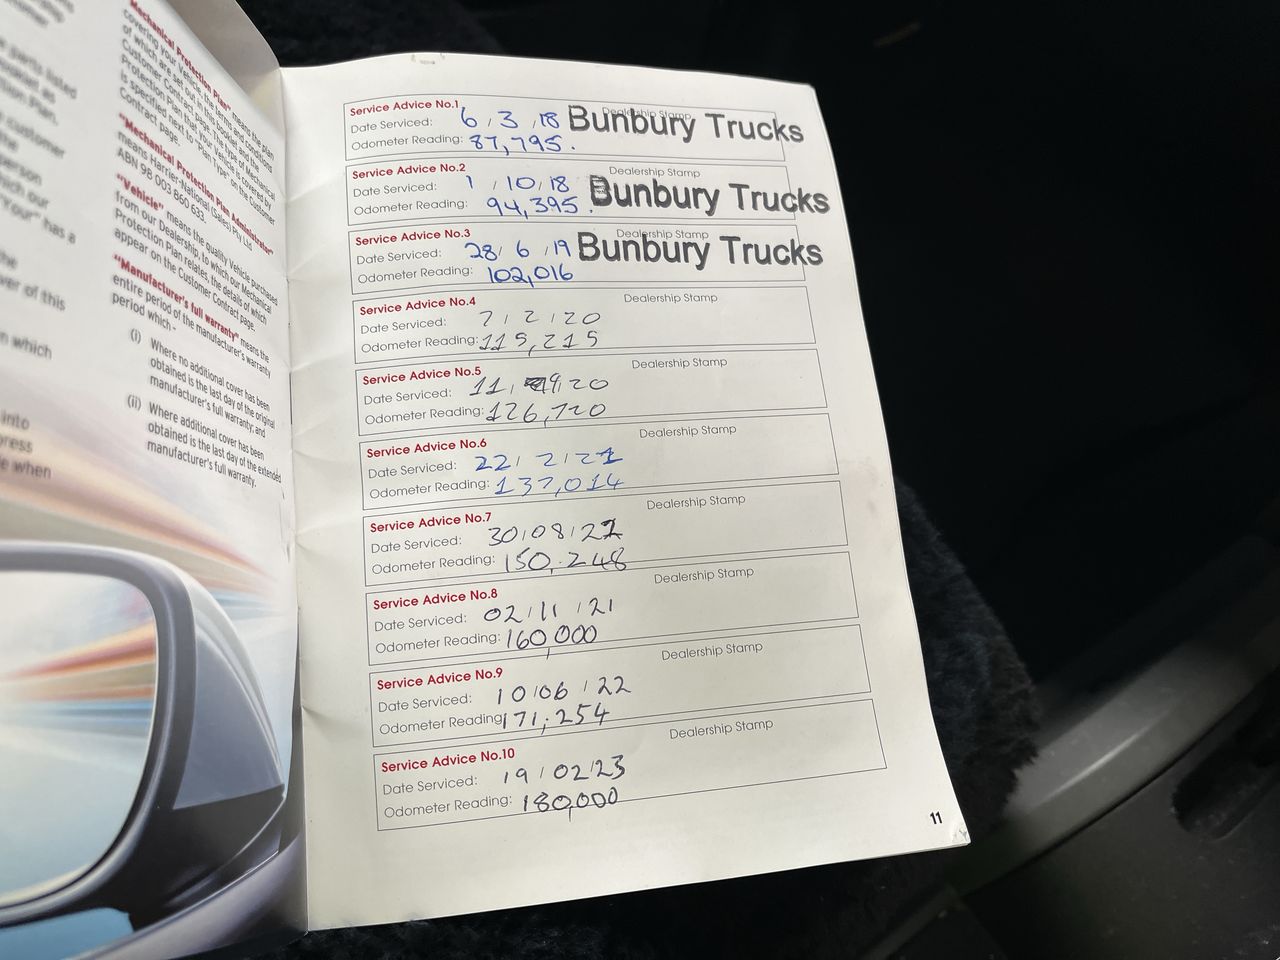 Mechanical Protection Plan" means the plan
covering your Vehicle, the terms and conditions
of which are set out in this booklet and the
Customer Contract page. The type of Mechanical
Protection Plan that your Vehicle is covered by
is specified next to "Plan Type" on the Customer
Contract page.
"Mechanical Protection Plan Administrator"
means Harrier-National (Sales) Pty Ltd
ABN 98 003 860 633.
"Vehicle" means the quality Vehicle purchased
from our Dealership, to which our Mechanical
Protection Plan relates, the details of which
appear on the Customer Contract page.
"Manufacturer's full warranty" means the
entire period of the manufacturer's warranty
period which -
(i) Where no additional cover has been
obtained is the last day of the original
manufacturer's full warranty; and
(ii) Where additional cover has been
obtained is the last day of the extended
manufacturer's full warranty.
parts listed
customer
person
which our
"Your" has a
the
ver of this
n which
into
press
le when
Service Advice No.1 Dealership Stamp
Date Serviced: 6 / 3 / 18 Bunbury Trucks
Odometer Reading: 87,795.
Service Advice No.2 Dealership Stamp
Date Serviced: 1 / 10 / 18 Bunbury Trucks
Odometer Reading: 94,395.
Service Advice No.3 Dealership Stamp
Date Serviced: 28 / 6 / 19 Bunbury Trucks
Odometer Reading: 102,016
Service Advice No.4 Dealership Stamp
Date Serviced: 7 / 2 / 20
Odometer Reading: 115,215
Service Advice No.5 Dealership Stamp
Date Serviced: 11 / 9 / 20
Odometer Reading: 126,720
Service Advice No.6 Dealership Stamp
Date Serviced: 22 / 2 / 21
Odometer Reading: 137,014
Service Advice No.7 Dealership Stamp
Date Serviced: 30 / 08 / 21
Odometer Reading: 150,248
Service Advice No.8 Dealership Stamp
Date Serviced: 02 / 11 / 21
Odometer Reading: 160,000
Service Advice No.9 Dealership Stamp
Date Serviced: 10 / 06 / 22
Odometer Reading: 171,254
Service Advice No.10 Dealership Stamp
Date Serviced: 19 / 02 / 23
Odometer Reading: 180,000
11